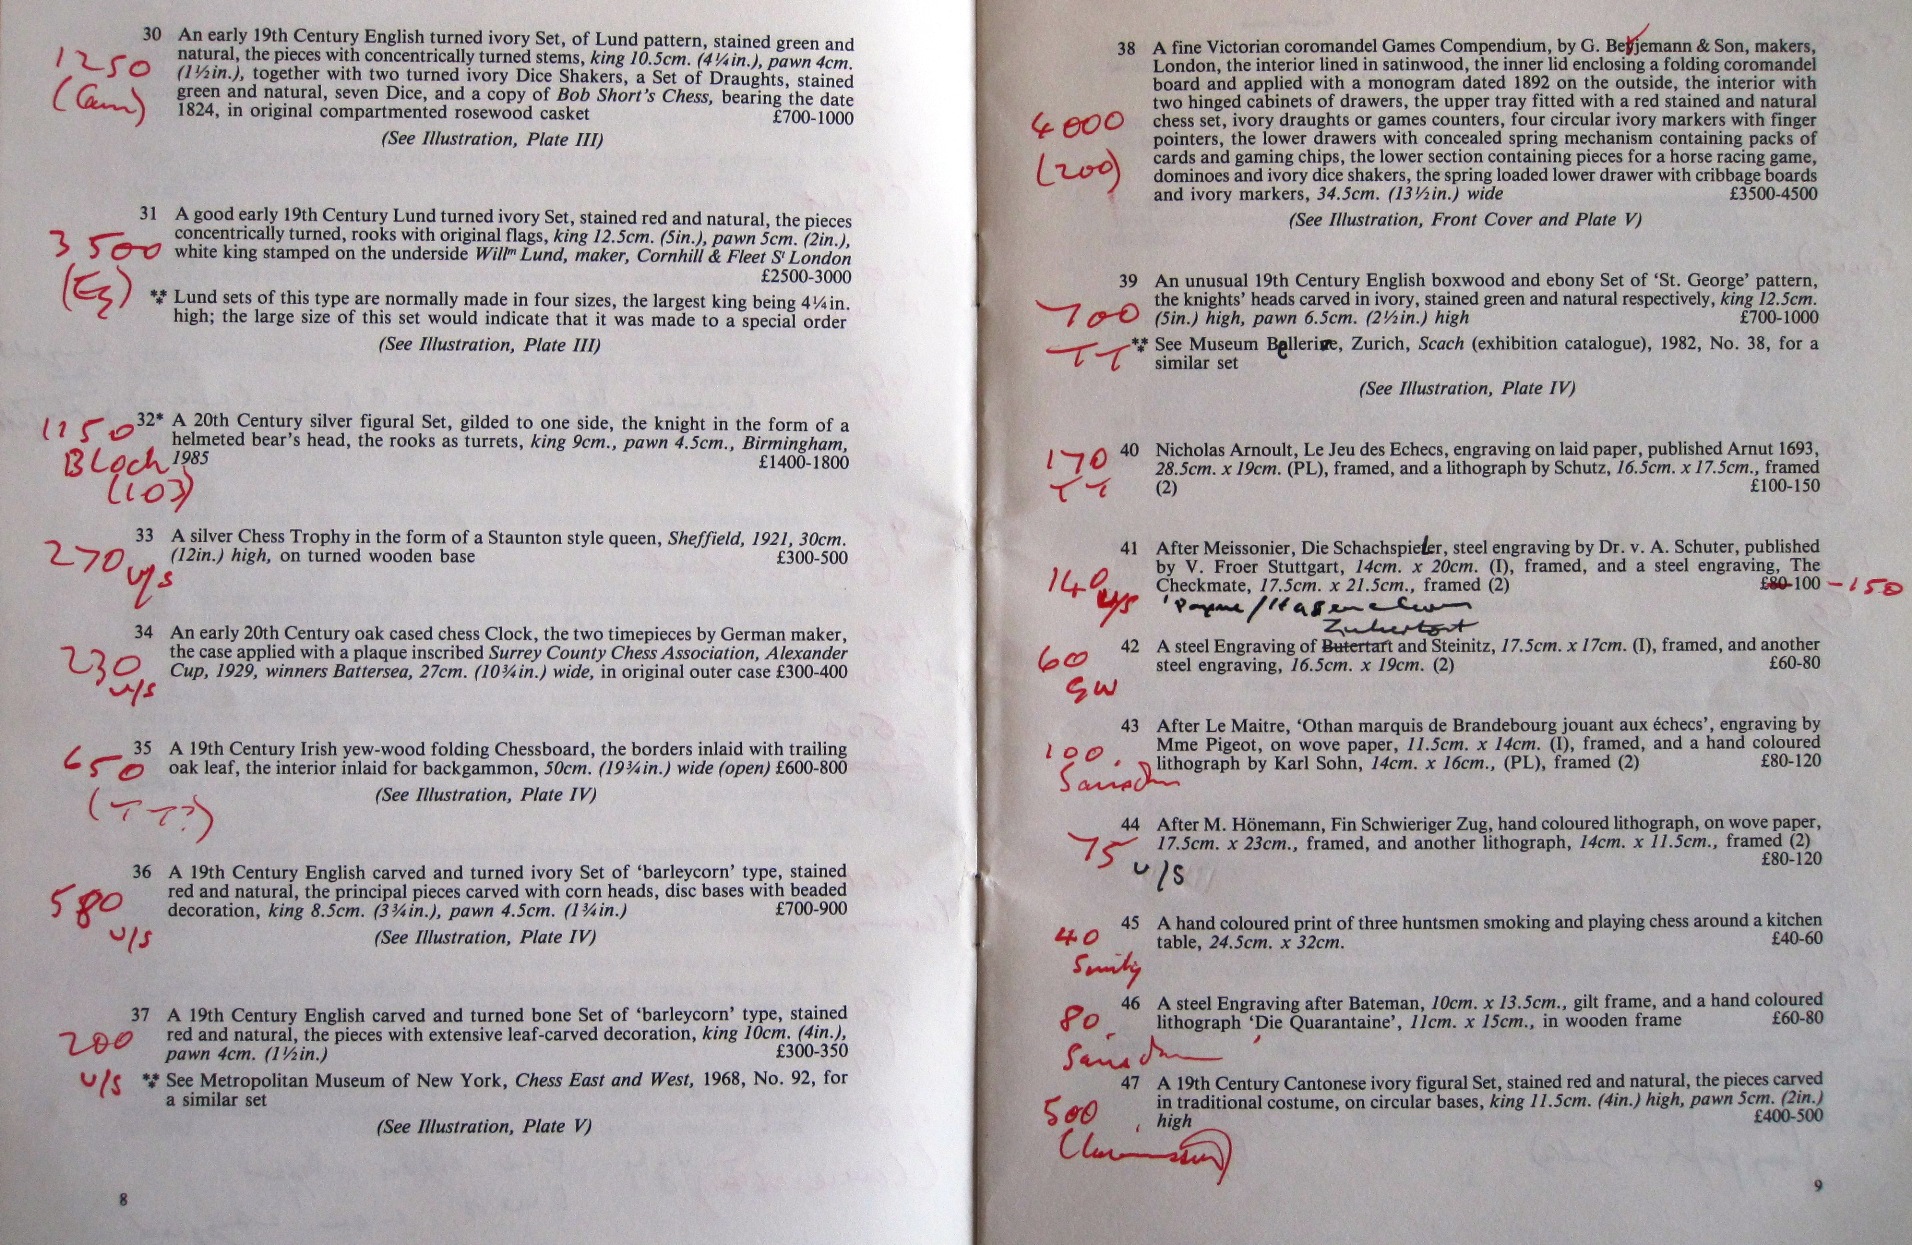 30 An early 19th Century English turned ivory Set, of Lund pattern, stained green and
natural, the pieces with concentrically turned stems, king 10.5cm. (4¼in.), pawn 4cm.
1250 (1½in.), together with two turned ivory Dice Shakers, a Set of Draughts, stained
green and natural, seven Dice, and a copy of Bob Short's Chess, bearing the date
1824, in original compartmented rosewood casket £700-1000
(See Illustration, Plate III)
31 A good early 19th Century Lund turned ivory Set, stained red and natural, the pieces
concentrically turned, rooks with original flags, king 12.5cm. (5in.), pawn 5cm. (2in.),
3500 white king stamped on the underside Willm Lund, maker, Cornhill & Fleet St London
£2500-3000
** Lund sets of this type are normally made in four sizes, the largest king being 4¼in.
high; the large size of this set would indicate that it was made to a special order
(See Illustration, Plate III)
1150 32* A 20th Century silver figural Set, gilded to one side, the knight in the form of a
helmeted bear's head, the rooks as turrets, king 9cm., pawn 4.5cm., Birmingham,
Bloch 1985 £1400-1800
(103)
33 A silver Chess Trophy in the form of a Staunton style queen, Sheffield, 1921, 30cm.
270 (12in.) high, on turned wooden base £300-500
u/s
34 An early 20th Century oak cased chess Clock, the two timepieces by German maker,
230 the case applied with a plaque inscribed Surrey County Chess Association, Alexander
u/s Cup, 1929, winners Battersea, 27cm. (10¾in.) wide, in original outer case £300-400
35 A 19th Century Irish yew-wood folding Chessboard, the borders inlaid with trailing
650 oak leaf, the interior inlaid for backgammon, 50cm. (19¾in.) wide (open) £600-800
(See Illustration, Plate IV)
(TT?)
36 A 19th Century English carved and turned ivory Set of 'barleycorn' type, stained
red and natural, the principal pieces carved with corn heads, disc bases with beaded
580 decoration, king 8.5cm. (3¾in.), pawn 4.5cm. (1¾in.) £700-900
u/s (See Illustration, Plate IV)
37 A 19th Century English carved and turned bone Set of 'barleycorn' type, stained
200 red and natural, the pieces with extensive leaf-carved decoration, king 10cm. (4in.),
pawn 4cm. (1½in.) £300-350
u/s ** See Metropolitan Museum of New York, Chess East and West, 1968, No. 92, for
a similar set
(See Illustration, Plate V)
8
38 A fine Victorian coromandel Games Compendium, by G. Betjemann & Son, makers,
London, the interior lined in satinwood, the inner lid enclosing a folding coromandel
board and applied with a monogram dated 1892 on the outside, the interior with
two hinged cabinets of drawers, the upper tray fitted with a red stained and natural
4000 chess set, ivory draughts or games counters, four circular ivory markers with finger
pointers, the lower drawers with concealed spring mechanism containing packs of
(200) cards and gaming chips, the lower section containing pieces for a horse racing game,
dominoes and ivory dice shakers, the spring loaded lower drawer with cribbage boards
and ivory markers, 34.5cm. (13½in.) wide £3500-4500
(See Illustration, Front Cover and Plate V)
39 An unusual 19th Century English boxwood and ebony Set of 'St. George' pattern,
the knights' heads carved in ivory, stained green and natural respectively, king 12.5cm.
700 (5in.) high, pawn 6.5cm. (2½in.) high £700-1000
TT ** See Museum Bellerive, Zurich, Scach (exhibition catalogue), 1982, No. 38, for a
similar set
(See Illustration, Plate IV)
170 40 Nicholas Arnoult, Le Jeu des Echecs, engraving on laid paper, published Arnut 1693,
28.5cm. x 19cm. (PL), framed, and a lithograph by Schutz, 16.5cm. x 17.5cm., framed
TT (2) £100-150
41 After Meissonier, Die Schachspieler, steel engraving by Dr. v. A. Schuter, published
by V. Froer Stuttgart, 14cm. x 20cm. (I), framed, and a steel engraving, The
140 Checkmate, 17.5cm. x 21.5cm., framed (2) £80-100 -150
u/s
Zukertort
42 A steel Engraving of Butertart and Steinitz, 17.5cm. x 17cm. (I), framed, and another
60 steel engraving, 16.5cm. x 19cm. (2) £60-80
GW
43 After Le Maitre, 'Othan marquis de Brandebourg jouant aux échecs', engraving by
100 Mme Pigeot, on wove paper, 11.5cm. x 14cm. (I), framed, and a hand coloured
lithograph by Karl Sohn, 14cm. x 16cm., (PL), framed (2) £80-120
44 After M. Hönemann, Fin Schwieriger Zug, hand coloured lithograph, on wove paper,
75 17.5cm. x 23cm., framed, and another lithograph, 14cm. x 11.5cm., framed (2)
u/s £80-120
45 A hand coloured print of three huntsmen smoking and playing chess around a kitchen
40 table, 24.5cm. x 32cm. £40-60
46 A steel Engraving after Bateman, 10cm. x 13.5cm., gilt frame, and a hand coloured
80 lithograph 'Die Quarantaine', 11cm. x 15cm., in wooden frame £60-80
47 A 19th Century Cantonese ivory figural Set, stained red and natural, the pieces carved
in traditional costume, on circular bases, king 11.5cm. (4in.) high, pawn 5cm. (2in.)
500 high £400-500
9